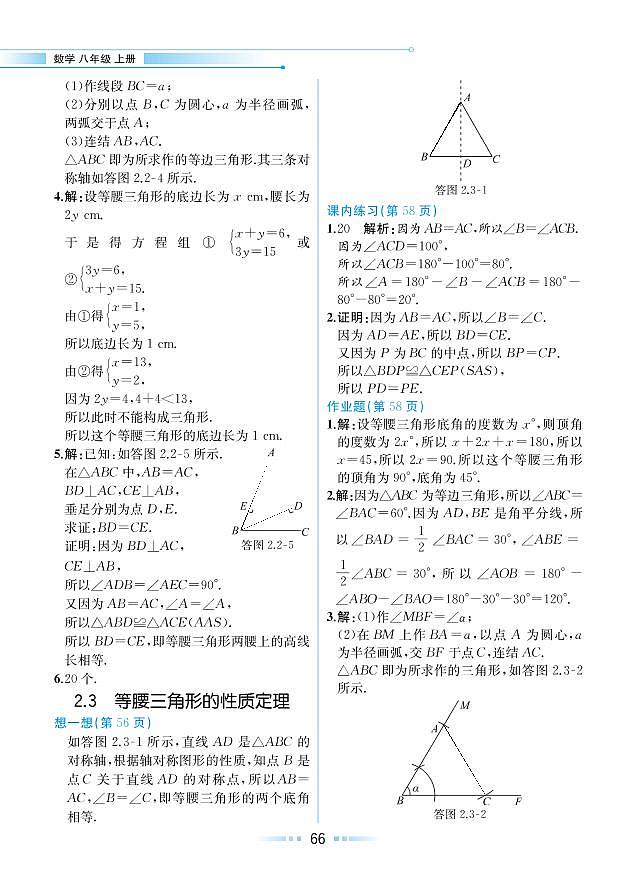 数学 八年级 上册
(1)作线段 BC=a;
(2)分别以点 B,C 为圆心,a 为半径画弧,
两弧交于点 A;
(3)连结 AB,AC.
△ABC 即为所求作的等边三角形.其三条对
称轴如答图 2.2-4 所示.
4.解:设等腰三角形的底边长为 x cm,腰长为
2y cm.
于是得方程组①{x+y=6, 3y=15 或
②{3y=6, x+y=15.
由①得{x=1, y=5,
所以底边长为 1 cm.
由②得{x=13, y=2.
因为 2y=4,4+4<13,
所以此时不能构成三角形.
所以这个等腰三角形的底边长为 1 cm.
5.解:已知:如答图 2.2-5 所示.
在△ABC 中,AB=AC,
BD⊥AC,CE⊥AB,
垂足分别为点 D,E.
求证:BD=CE.
证明:因为 BD⊥AC,
CE⊥AB,
A
E
D
B
C
答图 2.2-5
所以∠ADB=∠AEC=90°.
又因为 AB=AC,∠A=∠A,
所以△ABD≌△ACE(AAS).
所以 BD=CE,即等腰三角形两腰上的高线
长相等.
6.20 个.
2.3 等腰三角形的性质定理
想一想(第 56 页)
如答图 2.3-1 所示,直线 AD 是△ABC 的
对称轴,根据轴对称图形的性质,知点 B 是
点 C 关于直线 AD 的对称点,所以AB=
AC,∠B=∠C,即等腰三角形的两个底角
相等.
A
B
D
C
答图 2.3-1
课内练习(第 58 页)
1.20 解析:因为 AB=AC,所以∠B=∠ACB.
因为∠ACD=100°,
所以∠ACB=180°-100°=80°.
所以∠A=180°-∠B-∠ACB=180°-
80°-80°=20°.
2.证明:因为 AB=AC,所以∠B=∠C.
因为 AD=AE,所以 BD=CE.
又因为 P 为 BC 的中点,所以 BP=CP.
所以△BDP≌△CEP(SAS),
所以 PD=PE.
作业题(第 58 页)
1.解:设等腰三角形底角的度数为 x°,则顶角
的度数为 2x°,所以 x+2x+x=180,所以
x=45,所以 2x=90.所以这个等腰三角形
的顶角为 90°,底角为 45°.
2.解:因为△ABC 为等边三角形,所以∠ABC=
∠BAC=60°.因为 AD,BE 是角平分线,所
以∠BAD=1/2∠BAC=30°,∠ABE=
1/2∠ABC=30°,所以∠AOB=180°-
∠ABO-∠BAO=180°-30°-30°=120°.
3.解:(1)作∠MBF=∠α;
(2)在 BM 上作 BA=a,以点 A 为圆心,a
为半径画弧,交 BF 于点 C,连结 AC.
△ABC 即为所求作的三角形,如答图 2.3-2
所示.
M
A
α
B
C
F
答图 2.3-2
66